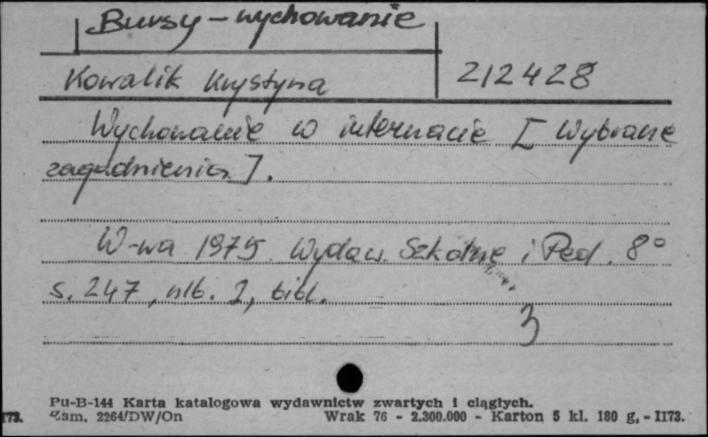 Bursy - wychowanie
Kowalik Krystyna 212428
Wychowanie w internacie [Wybrane
zagadnienia].
W-wa 1975. Wydaw. Szkolne i Ped. 8°
s. 247, nlb. 2, bibl.
3
Pu-B-144 Karta katalogowa wydawnictw zwartych i ciągłych.
173. Zam. 2264/DW/On Wrak 76 - 2.300.000 - Karton 5 kl. 180 g. - I173.